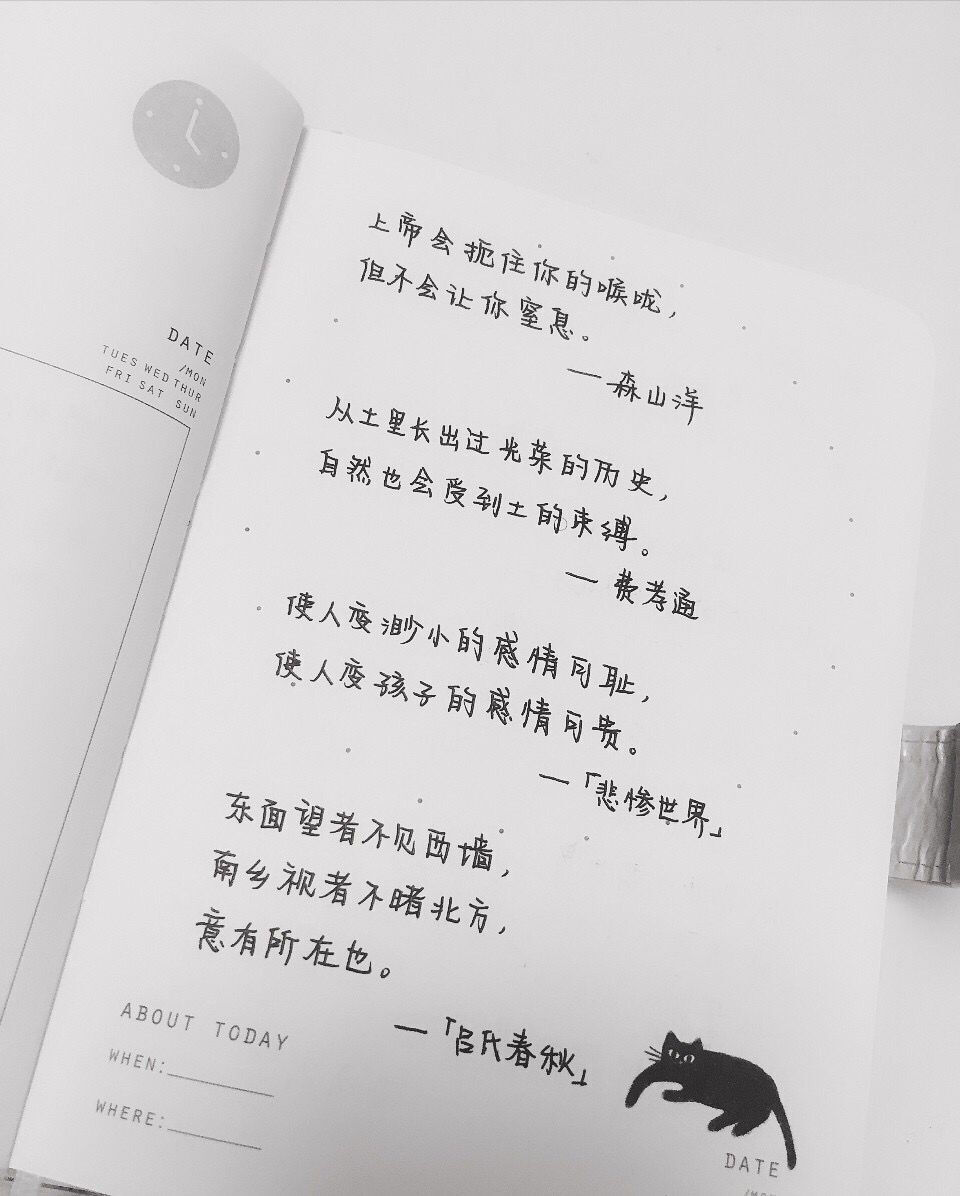 DATE
/MON
TUES WED THUR
FRI SAT SUN
上帝会扼住你的喉咙，
但不会让你窒息。
—森山洋
从土里长出过光荣的历史，
自然也会受到土的束缚。
—费孝通
使人变渺小的感情可耻，
使人变孩子的感情可贵。
—「悲惨世界」
东面望者不见西墙，
南乡视者不睹北方，
意有所在也。
—「吕氏春秋」
ABOUT TODAY
WHEN:
WHERE:
DATE